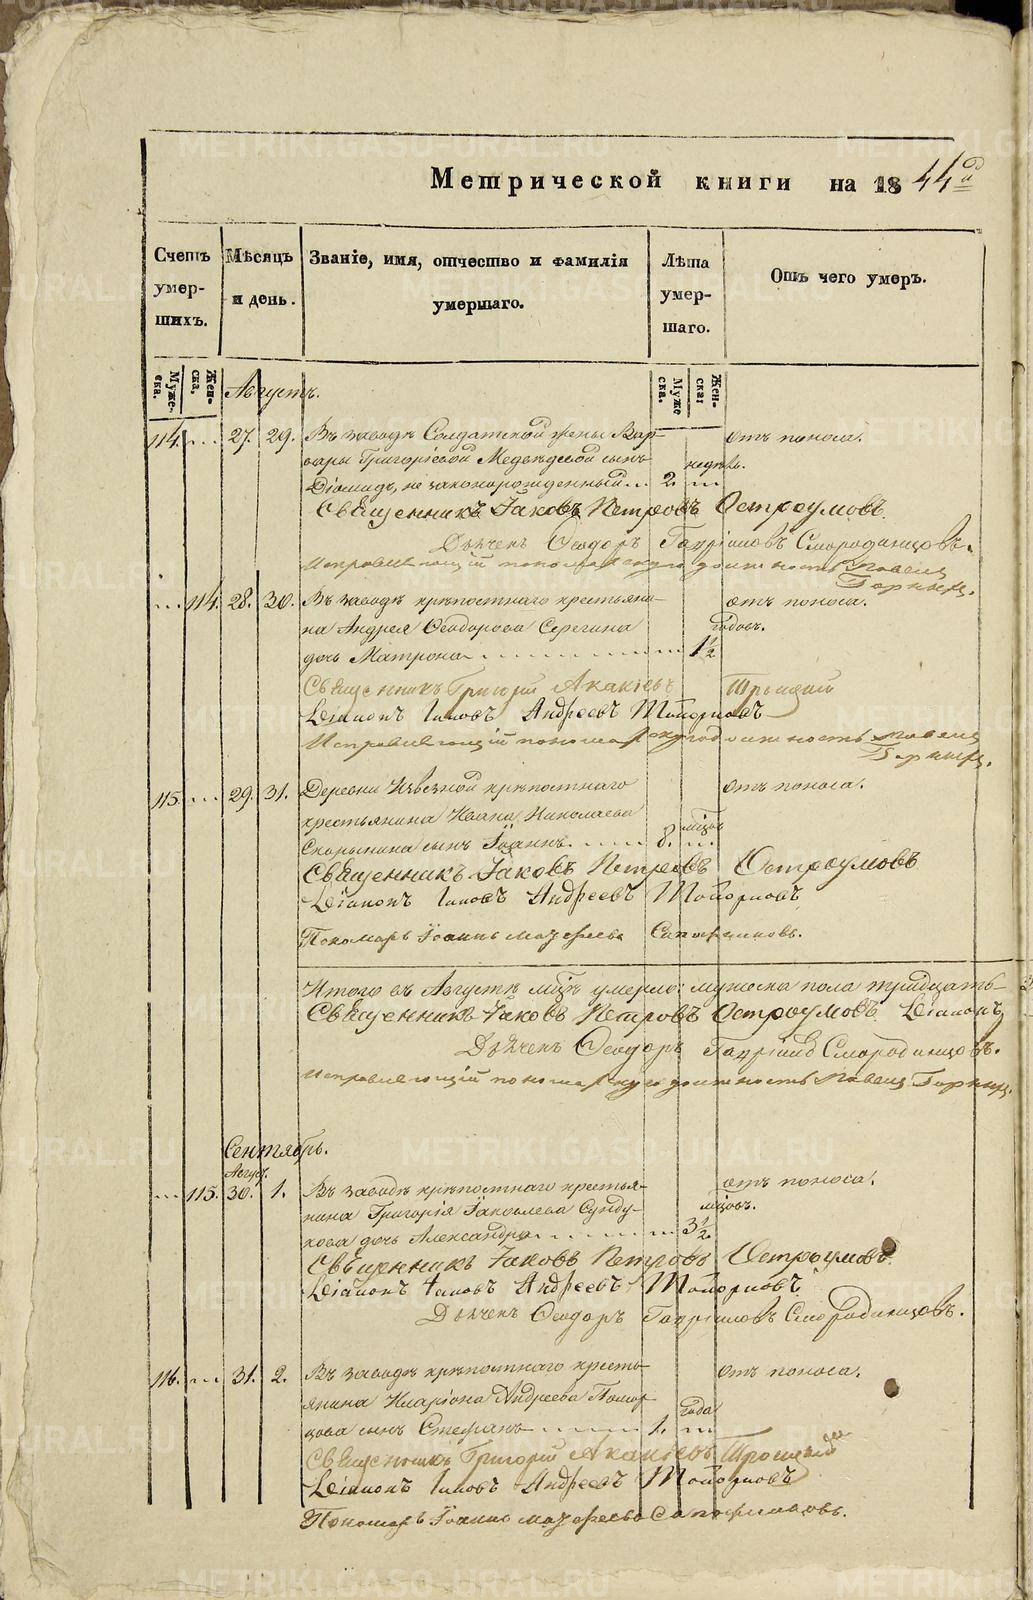 Метрической книги на 1844й
Счетъ умер- шихъ.
Мѣсяцъ и день.
Званіе, имя, отчество и фамилія умершаго.
Лѣта умер- шаго.
Отъ чего умеръ.
Муже- ска.
Жен- ска.
Муже ска.
Жен- ска.
Августъ.
114. 27. 29. Въ заводѣ Солдатской жены Вар-
вары Григорьевой Медвѣдевой сынъ недѣль.
Діомидъ, незаконорожденный 2. отъ поноса.
Священникъ Іаковъ Петровъ Остроумовъ.
Дьячекъ Ѳеодоръ Гавріиловъ Смородинцовъ.
Исправляющій пономарскую должность Павелъ
114. 28. 30. Въ заводѣ крѣпостнаго крестьяни-
на Андрея Ѳеодорова Серегина годовъ.
дочь Матрона 1½ отъ поноса.
Священникъ Григорій Акакіевъ Троицкій
Діаконъ Іаковъ Андреевъ
Исправляющій пономарскую должность Павелъ
115. 29. 31. Деревни крѣпостнаго
крестьянина Ивана Николаева мѣсцъ
сынъ Іоаннъ 8. отъ поноса.
Священникъ Іаковъ Петровъ Остроумовъ
Діаконъ Іаковъ Андреевъ
Пономарь Іоаннъ Сапожниковъ.
Итого въ Августѣ мцѣ умерло: мужеска пола тридцать-
Священникъ Іаковъ Петровъ Остроумовъ Діаконъ
Дьячекъ Ѳеодоръ Гавріиловъ Смородинцовъ.
Исправляющій пономарскую должность Павелъ
Сентябрь.
Август.
115. 30. 1. Въ заводѣ крѣпостнаго крестья-
нина Григорія Іаковлева Сунду- мцовъ.
кова дочь Александра 3½ отъ поноса.
Священникъ Іаковъ Петровъ Остроумовъ
Діаконъ Іаковъ Андреевъ
Дьячекъ Ѳеодоръ Гавріиловъ Смородинцовъ.
116. 31. 2. Въ заводѣ крѣпостнаго кресть-
янина Иларіона Андреева года
сынъ Стефанъ 1. отъ поноса.
Священникъ Григорій Акакіевъ Троицкій
Діаконъ Іаковъ Андреевъ
Пономарь Іоаннъ Сапожниковъ.
METRIKI.GASO-URAL.RU